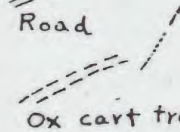 Road
Ox cart